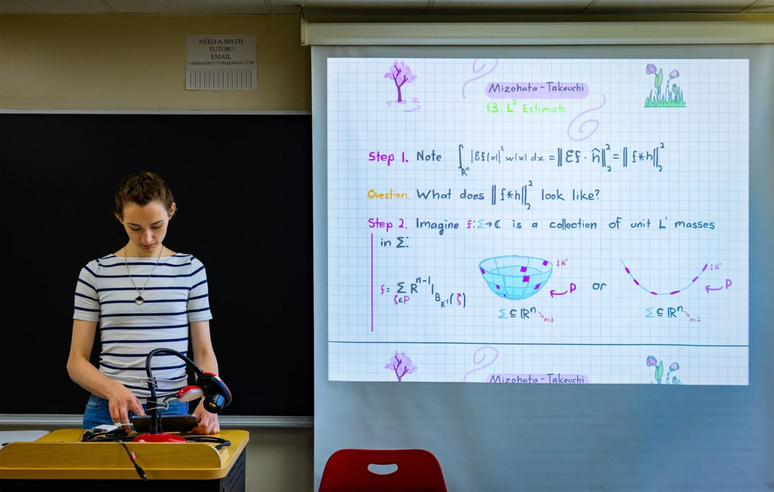 NEED A MATH
TUTOR?
EMAIL
Mizohata-Takeuchi
§3: L² Estimate
Step 1. Note ∫_ℝⁿ |Ef(x)|² w(x) dx = ‖Ef · ĥ‖₂² = ‖f*h‖₂²
Question. What does ‖f*h‖₂² look like?
Step 2. Imagine f:Σ→ℂ is a collection of unit L¹ masses
in Σ:
f = Σ_{ζ∈P} R^{n-1} 1_{B_{R^{-1}}(ζ)}
P
or
P
Σ ⊆ ℝⁿ n=3
Σ ⊆ ℝⁿ n=2
Mizohata-Takeuchi